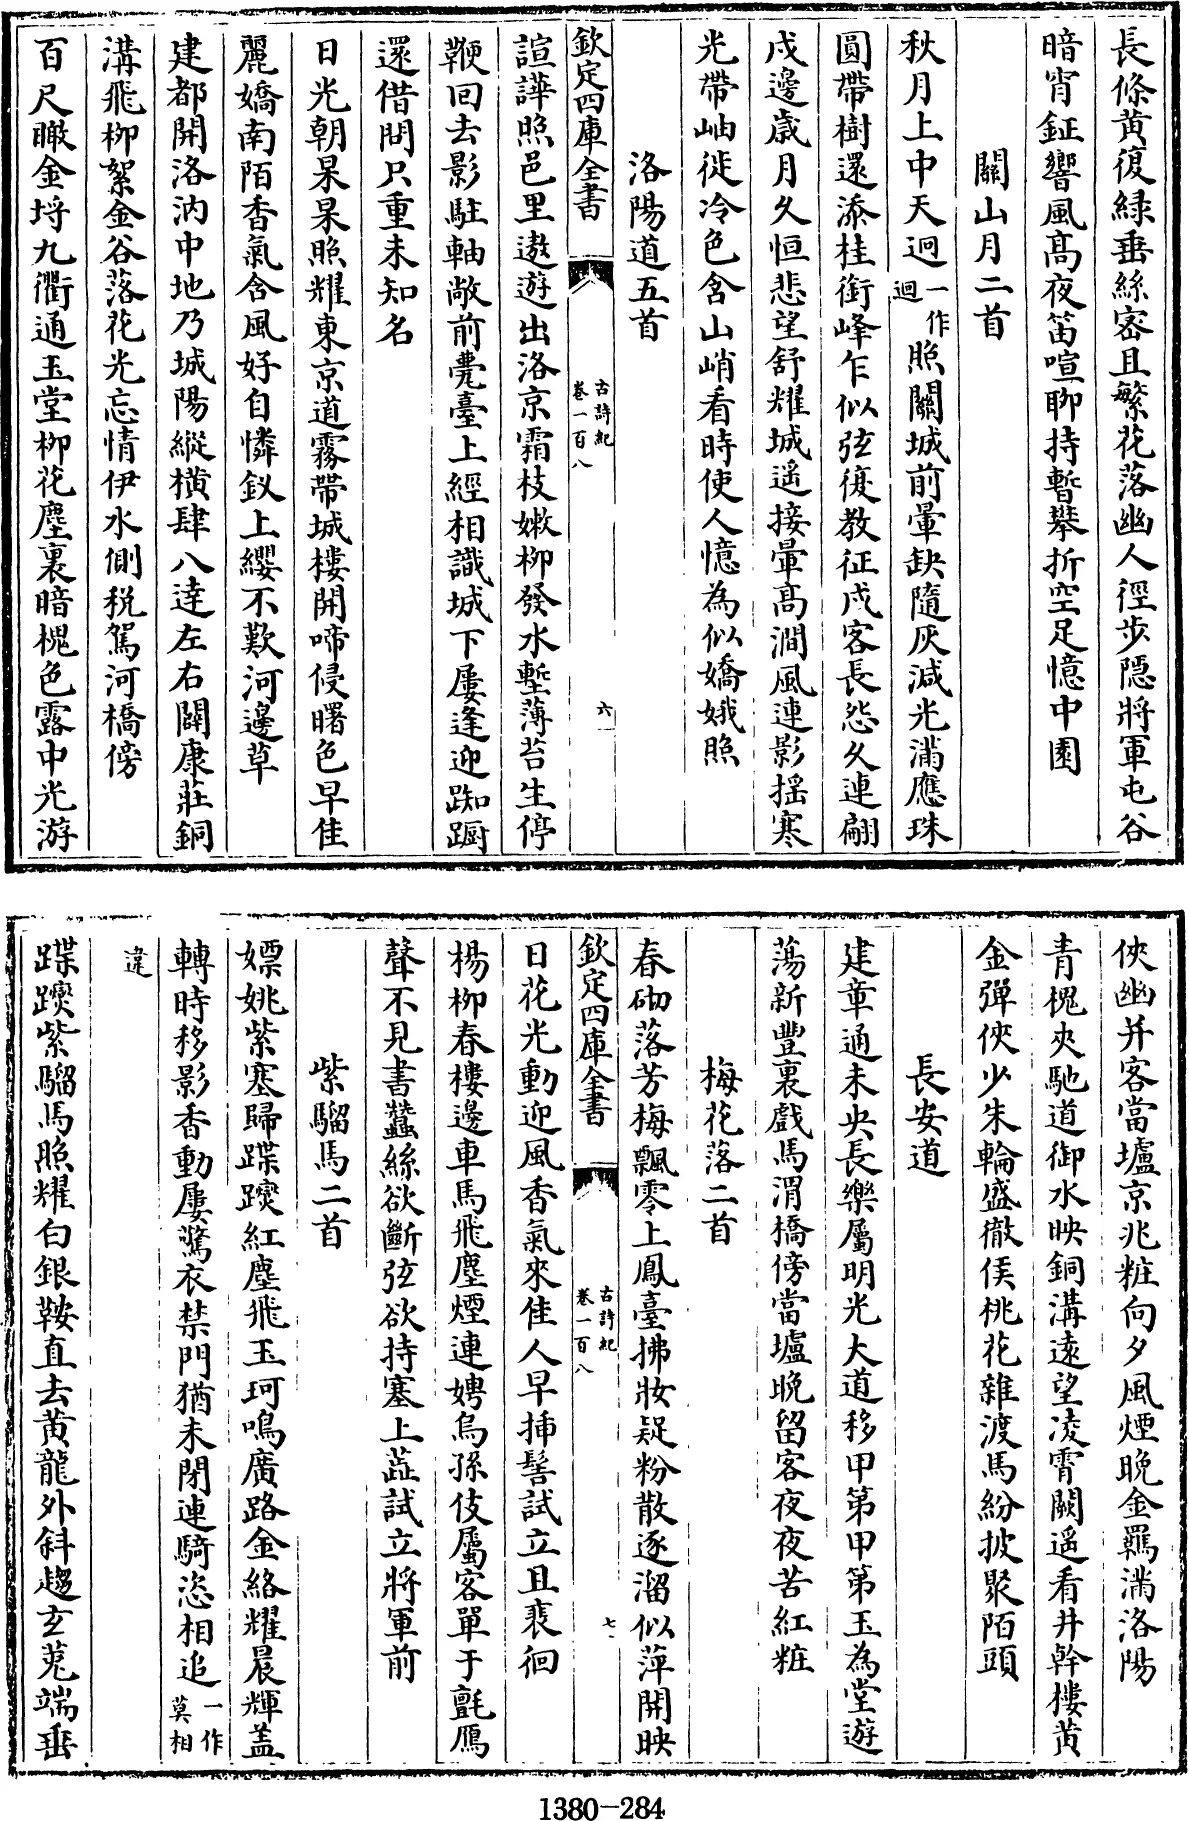 長條黃復綠垂絲密且繁花落幽人徑步隱將軍屯谷
暗宵鉦響風高夜笛喧聊持暫攀折空足憶中園
關山月二首
秋月上中天迥一作迴照關城前暈缺隨灰減光滿應珠
圓帶樹還添桂銜峰乍似弦復教征戍客長怨久連翩
戍邊歲月久恒悲望舒耀城遥接暈高澗風連影揺寒
光帶岫徙冷色含山峭看時使人憶為似嬌娥照
洛陽道五首
欽定四庫全書
古詩紀
卷一百八
六
諠譁照邑里遨遊出洛京霜枝嫩柳發水塹薄苔生停
鞭回去影駐軸敞前甍臺上經相識城下屢逢迎踟蹰
還借問只重未知名
日光朝杲杲照耀東京道霧帶城樓開啼侵曙色早佳
麗嬌南陌香氣含風好自憐釵上纓不歎河邊草
建都開洛汭中地乃城陽縱橫肆八逹左右闢康莊銅
溝飛柳絮金谷落花光忘情伊水側税駕河橋傍
百尺瞰金埒九衢通玉堂柳花塵裏暗槐色露中光游
俠幽并客當壚京兆粧向夕風煙晚金羈滿洛陽
青槐夾馳道御水映銅溝遠望凌霄闕遥看井幹樓黄
金彈俠少朱輪盛徹侯桃花雜渡馬紛披聚陌頭
長安道
建章通未央長樂屬明光大道移甲第甲第玉為堂遊
蕩新豐裏戲馬渭橋傍當壚晚留客夜夜苦紅粧
梅花落二首
春砌落芳梅飄零上鳳臺拂妝疑粉散逐溜似萍開映
欽定四庫全書
古詩紀
卷一百八
七
日花光動迎風香氣來佳人早插髻試立且裴徊
楊柳春樓邊車馬飛塵煙連娉烏孫伎屬客單于氈鴈
聲不見書蠶絲欲斷弦欲持塞上蕋試立將軍前
紫騮馬二首
嫖姚紫塞歸蹀躞紅塵飛玉珂鳴廣路金絡耀晨輝盖
轉時移影香動屢驚衣禁門猶未閉連騎恣相追一作莫相
違
蹀躞紫騮馬照耀白銀鞍直去黄龍外斜趨玄莵端垂
1380-284